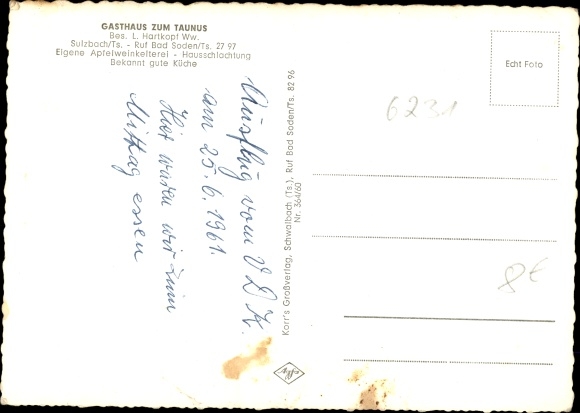 GASTHAUS ZUM TAUNUS
Bes. L. Hartkopf Ww.
Sulzbach/Ts. - Ruf Bad Soden/Ts. 27 97
Eigene Apfelweinkelterei - Hausschlachtung
Bekannt gute Küche
Ausflug vom V D K.
am 25.6.1961.
Hier waren wir zum
Mittag essen
Korr's Großverlag, Schwalbach (Ts.), Ruf Bad Soden/Ts. 82 96
Nr. 364/60
Echt Foto
6231
8€